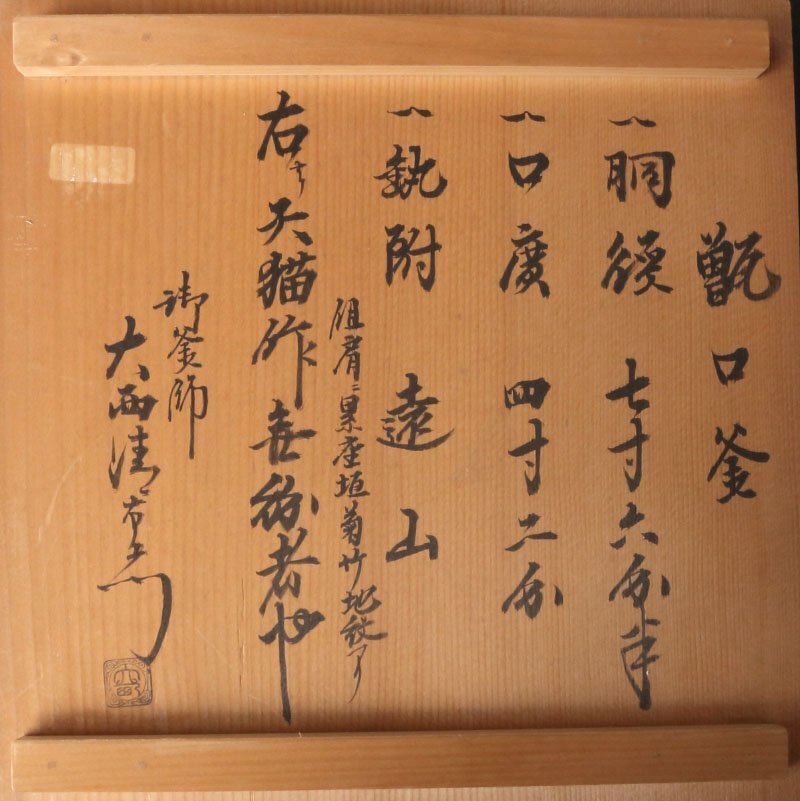 甑口釜
一胴径 七寸六分半
一口廣 四寸二分
一鈍附 遠山
但肩ニ 累座垣菊竹地紋アリ
右ハ天猫作無紛者也
御釜師
大西清右衛門